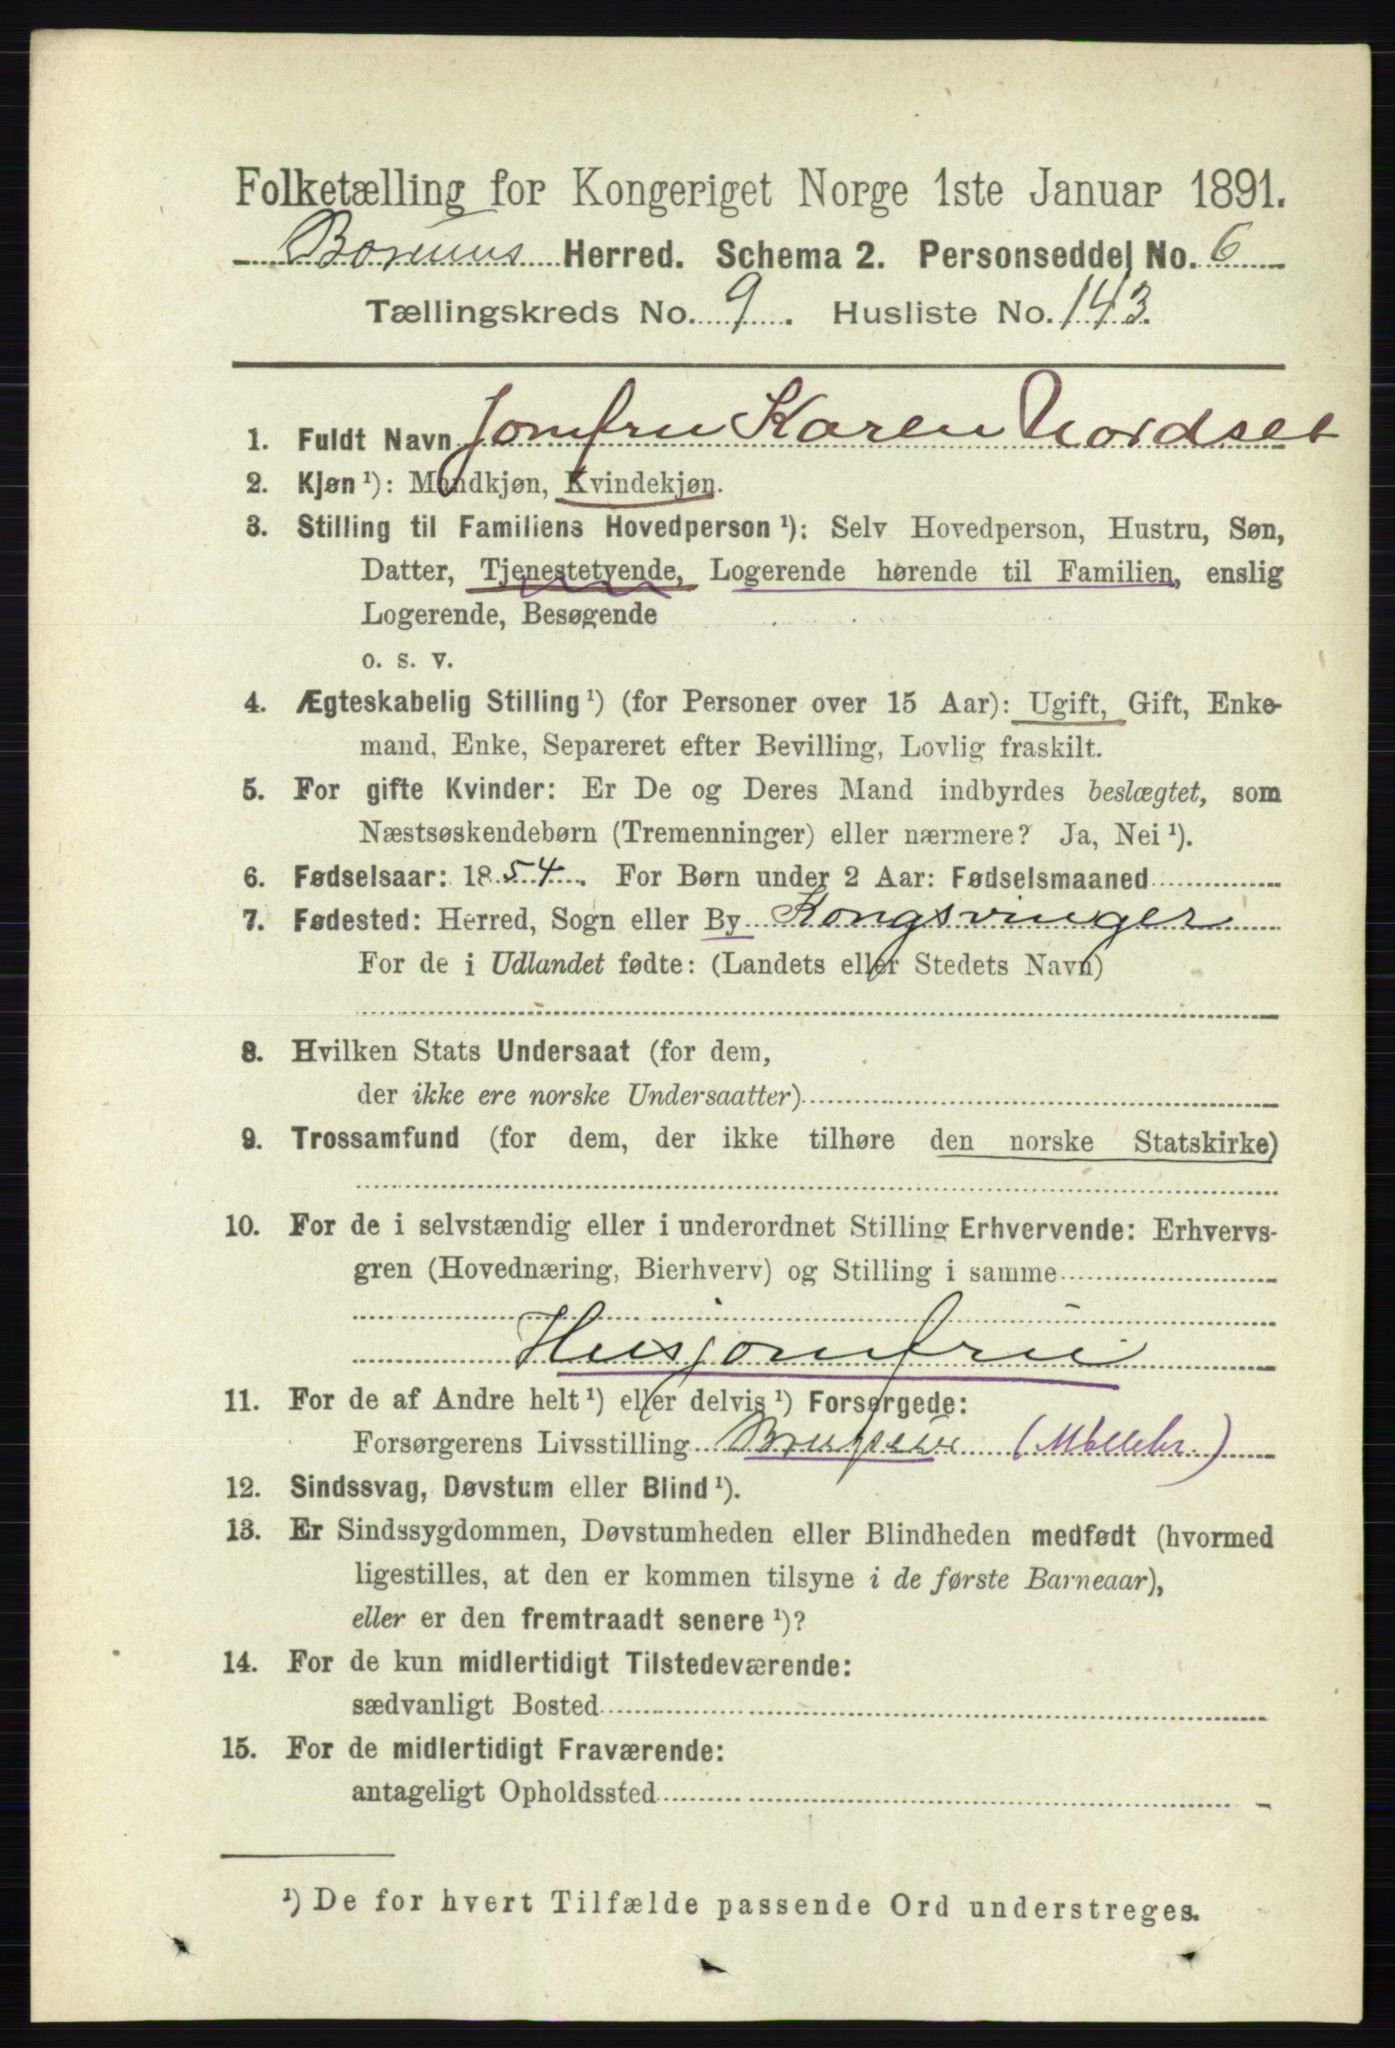 Folketælling for Kongeriget Norge 1ste Januar 1891.
Borunns Herred. Schema 2. Personseddel No. 6
Tællingskreds No. 9. Husliste No. 143.
1. Fuldt Navn Jomfru Karen Nordset
2. Kjøn ¹): Mandkjøn, Kvindekjøn.
3. Stilling til Familiens Hovedperson ¹): Selv Hovedperson, Hustru, Søn,
Datter, Tjenestetyende, Logerende hørende til Familien, enslig
Logerende, Besøgende
o. s. v.
4. Ægteskabelig Stilling ¹) (for Personer over 15 Aar): Ugift, Gift, Enke-
mand, Enke, Separeret efter Bevilling, Lovlig fraskilt.
5. For gifte Kvinder: Er De og Deres Mand indbyrdes beslægtet, som
Næstsøskendebørn (Tremenninger) eller nærmere? Ja, Nei ¹).
6. Fødselsaar: 1854. For Børn under 2 Aar: Fødselsmaaned
7. Fødested: Herred, Sogn eller By Kongsvinger
For de i Udlandet fødte: (Landets eller Stedets Navn)
8. Hvilken Stats Undersaat (for dem,
der ikke ere norske Undersaatter)
9. Trossamfund (for dem, der ikke tilhøre den norske Statskirke)
10. For de i selvstændig eller i underordnet Stilling Erhvervende: Erhvervs-
gren (Hovednæring, Bierhverv) og Stilling i samme
Husjomfru
11. For de af Andre helt ¹) eller delvis ¹) Forsørgede:
Forsørgerens Livsstilling
12. Sindssvag, Døvstum eller Blind ¹).
13. Er Sindssygdommen, Døvstumheden eller Blindheden medfødt (hvormed
ligestilles, at den er kommen tilsyne i de første Barneaar),
eller er den fremtraadt senere ¹)?
14. For de kun midlertidigt Tilstedeværende:
sædvanligt Bosted
15. For de midlertidigt Fraværende:
antageligt Opholdssted
¹) De for hvert Tilfælde passende Ord understreges.